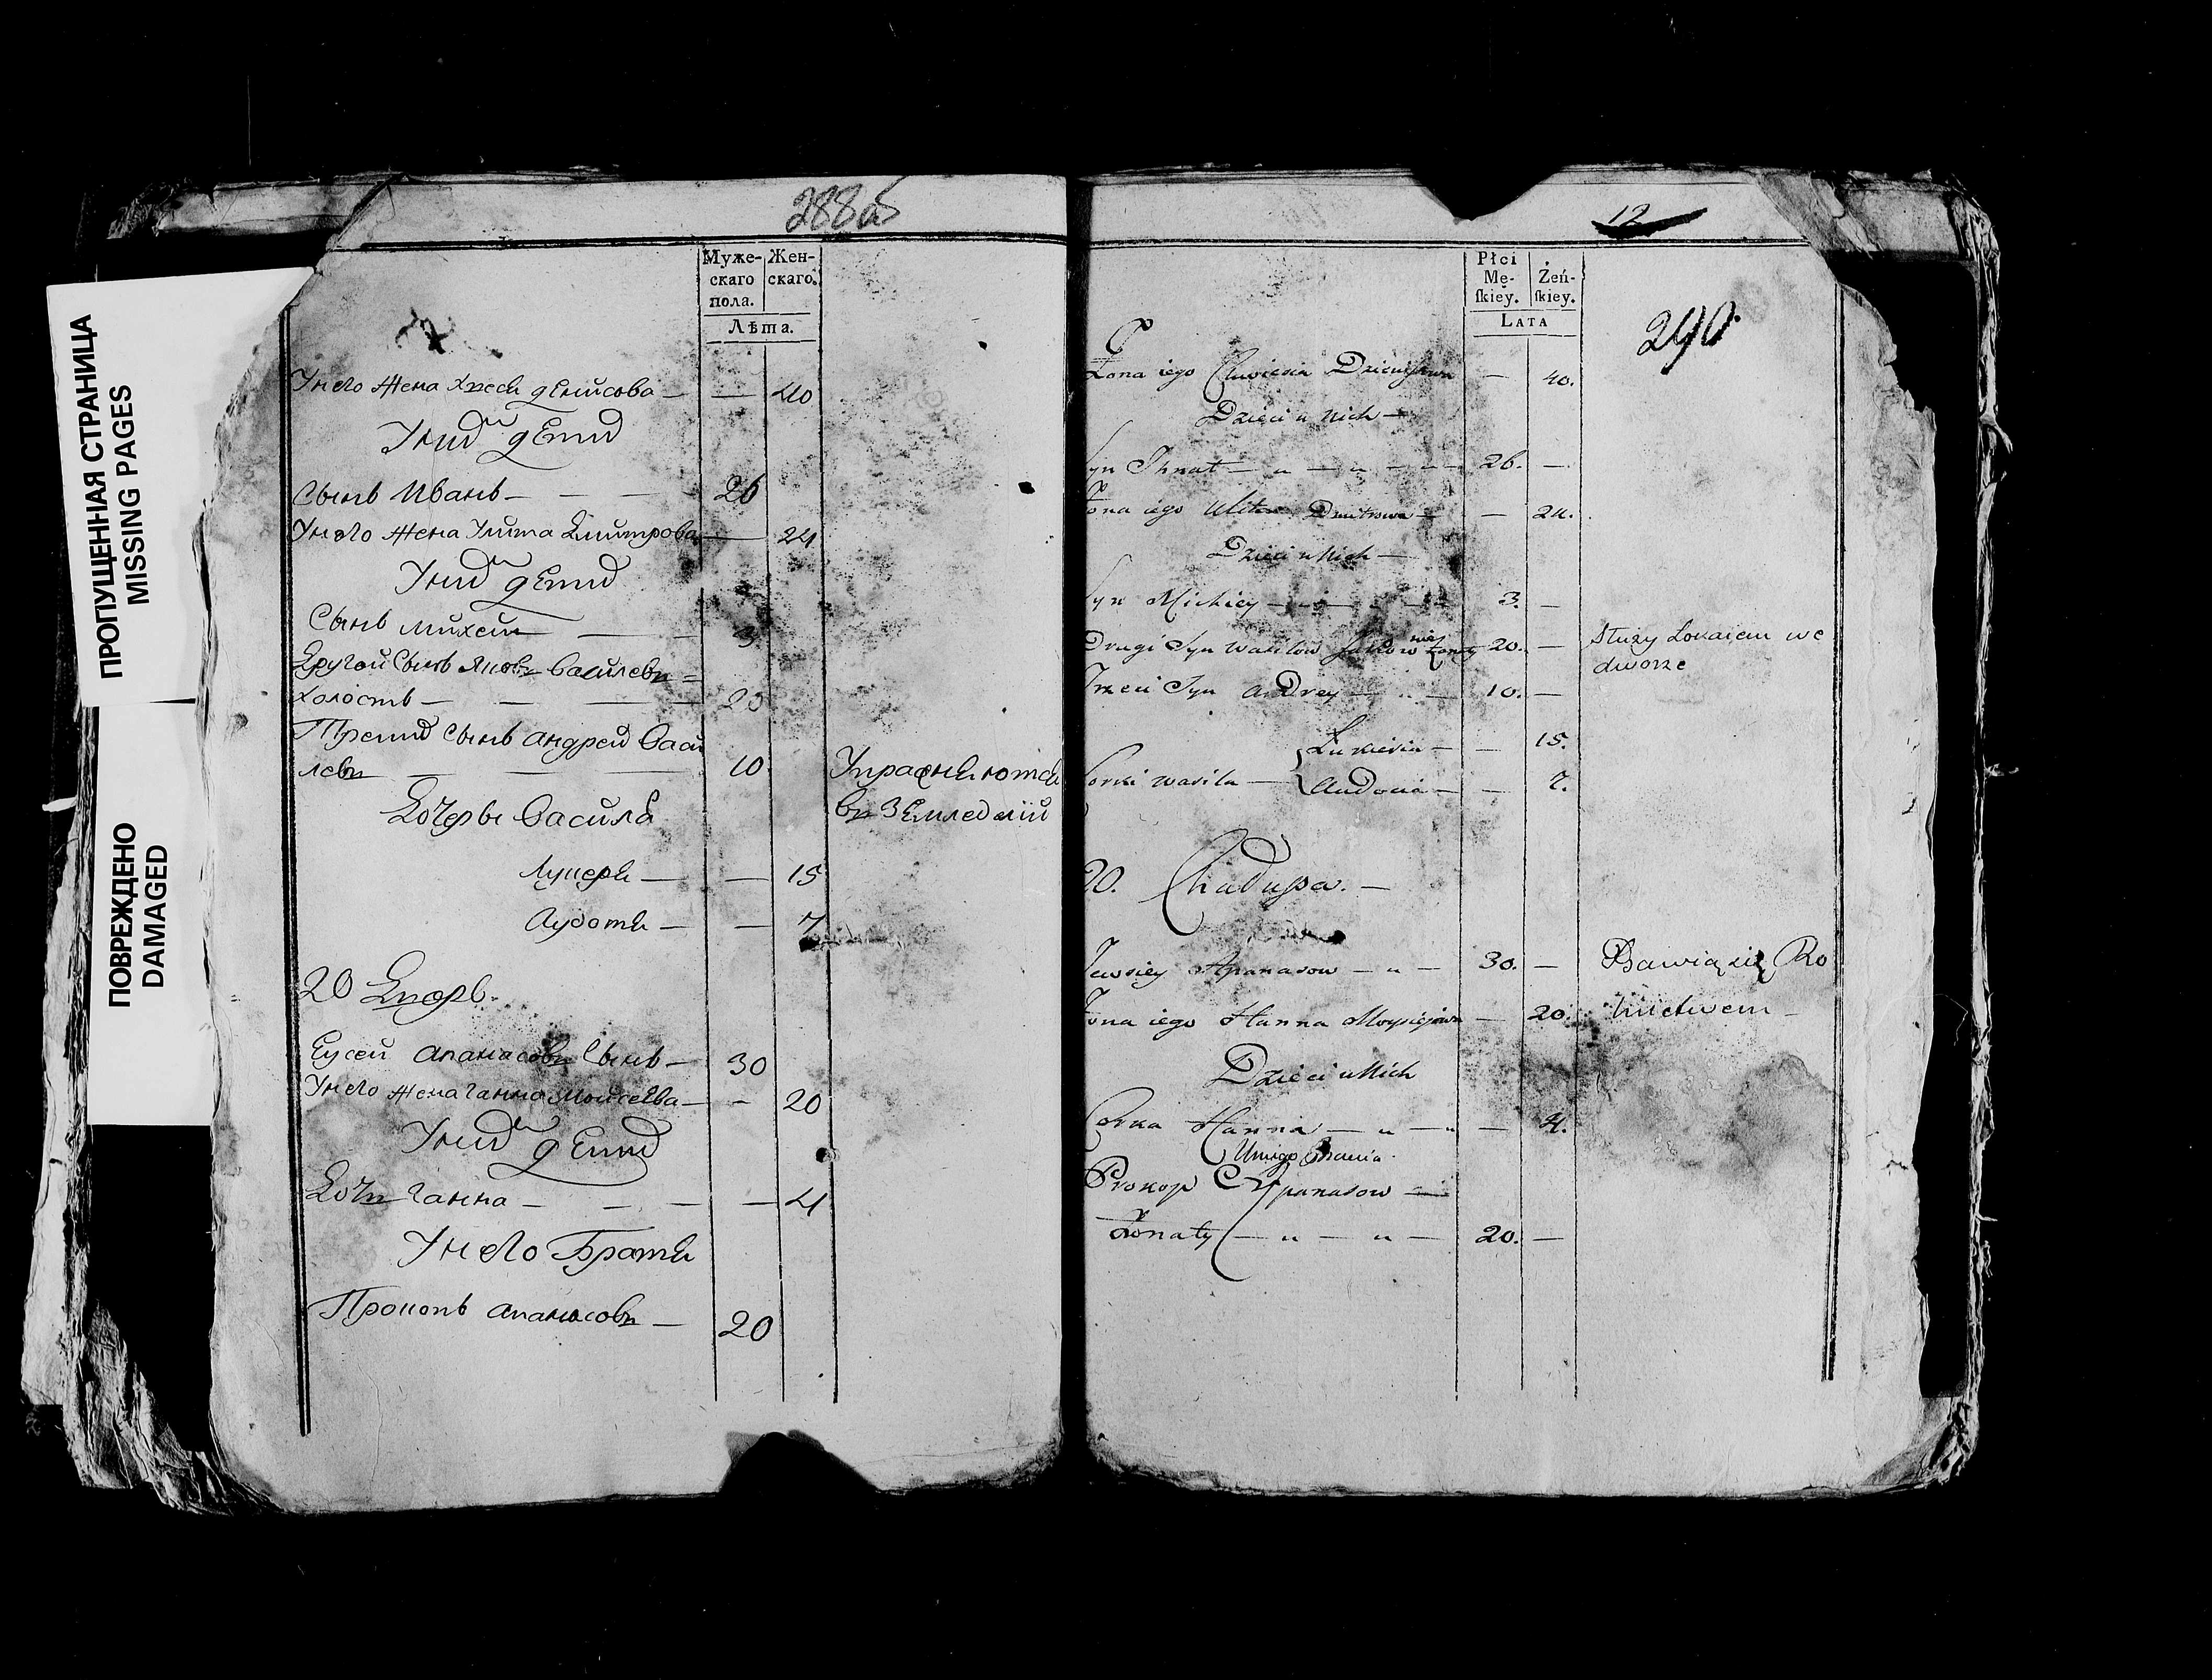 ПРОПУЩЕННАЯ СТРАНИЦА
MISSING PAGES
ПОВРЕЖДЕНО
DAMAGED
288об
Муже-скаго пола. Жен-скаго.
Лѣта.
У него жена Хвеся Денисова — — 40
У них дети
Сынъ Иванъ — — — 26
У него жена Улита Дмитрова — 24
У них дети
Сынъ Михей — — 3
Другой Сынъ Яковъ Василевъ
холостъ — — — 20
Третий Сынъ Андрей Васи
левъ — — — 10
Упражняются
Дочеры Василя
въ Земледелии
Лукеря — — 15
Аудотя — — 7
20 Дворъ.
Еусей Апанасовъ Сынъ — 30
У него жена Ганна Моисеева — — 20
У них дети
Дочь Ганна — — — — 4
У него Братя
Прокопъ Апанасовъ — 20
12
Płci Mę-ſkiey. Żeń-ſkiey.
LATA
290
Żona iego Dzienisowa — 40.
Dzieci u nich —
Syn Ihnat — „ — „ — — 26. —
Żona iego Ulita Dmitrowa — — 24.
Dzieci u Nich —
Syn Michiey — „ — — 3. —
Drugi Syn Wasilow Jakow nie Żonaty 20. —
Służy Lokaiem we
dworze
Trzeci Syn Andrey — „ — 10. —
Lukieria — — 15.
Corki Wasila — Audocia — — 7.
20. Chałupa. —
Jewsiey Apanasow — „ — 30. —
Bawią się Ro
Żona iego Hanna Moysiejowa — 20.
lnictwem —
Dzieci u Nich
Corka Hanna — „ — „ — 4.
U niego Bracia
Prokop Apanasow —
Żonaty — „ — „ — 20. —